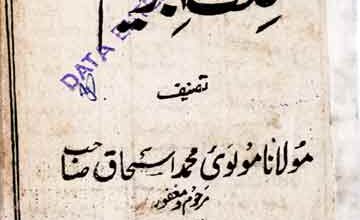 DATA E
تصنیف
مولانا مولوی محمد اسحاق صاحب
مرحوم و مغفور